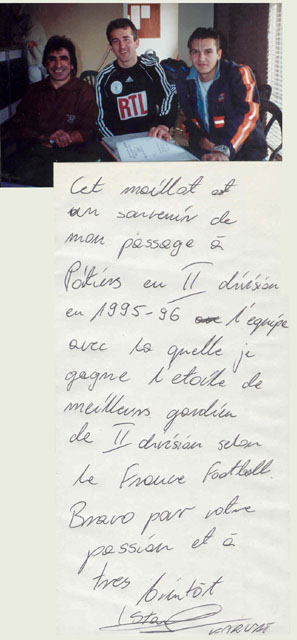 RTL
Cet maillot est
un souvenir de
mon passage à
Poitiers en II division
en 1995-96 l'équipe
avec la quelle je
gagne l'etoile de
meilleurs gardien
de II division selon
le France Football.
Bravo pour votre
passion et à
tres bientôt